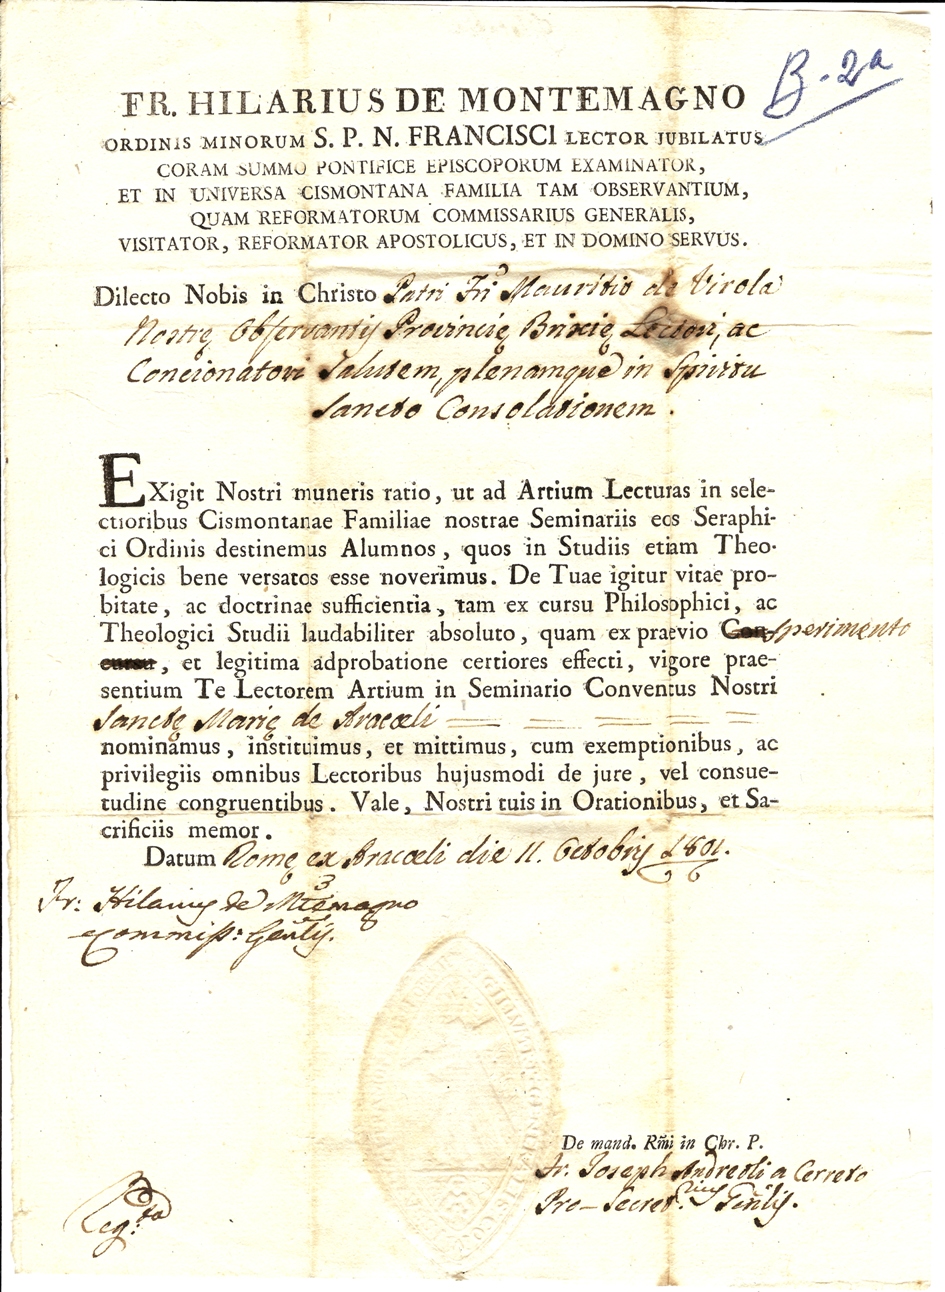 B. 2a
FR. HILARIUS DE MONTEMAGNO
ORDINIS MINORUM S. P. N. FRANCISCI LECTOR JUBILATUS
CORAM SUMMO PONTIFICE EPISCOPORUM EXAMINATOR,
ET IN UNIVERSA CISMONTANA FAMILIA TAM OBSERVANTIUM,
QUAM REFORMATORUM COMMISSARIUS GENERALIS,
VISITATOR, REFORMATOR APOSTOLICUS, ET IN DOMINO SERVUS.
Dilecto Nobis in Christo Patri Fri Mauritio de Virola
Nostrę Observantis Provincię Brixię Lectori, ac
Concionatori Salutem, plenamque in Spiritu
Sancto Consolationem.
EXigit Nostri muneris ratio, ut ad Artium Lecturas in sele-
ctioribus Cismontanae Familiae nostrae Seminariis eos Seraphi-
ci Ordinis destinemus Alumnos, quos in Studiis etiam Theo-
logicis bene versatos esse noverimus. De Tuae igitur vitae pro-
bitate, ac doctrinae sufficientia, tam ex cursu Philosophici, ac
Theologici Studii laudabiliter absoluto, quam ex praevio Con-sperimento
cursu, et legitima adprobatione certiores effecti, vigore prae-
sentium Te Lectorem Artium in Seminario Conventus Nostri
Sanctę Marię de Aracœli
nominamus, instituimus, et mittimus, cum exemptionibus, ac
privilegiis omnibus Lectoribus hujusmodi de jure, vel consue-
tudine congruentibus. Vale, Nostri tuis in Orationibus, et Sa-
crificiis memor.
Datum Romę ex Aracœli die 11. Octobris 1801.
Fr: Hilarius de Mtemagno
Commiss: Genlis.
De mand. Rm̃i in Chr. P.
Fr. Joseph Andreoli a Cerreto
Pro-Secret.rius Genlis.
Reg.ta